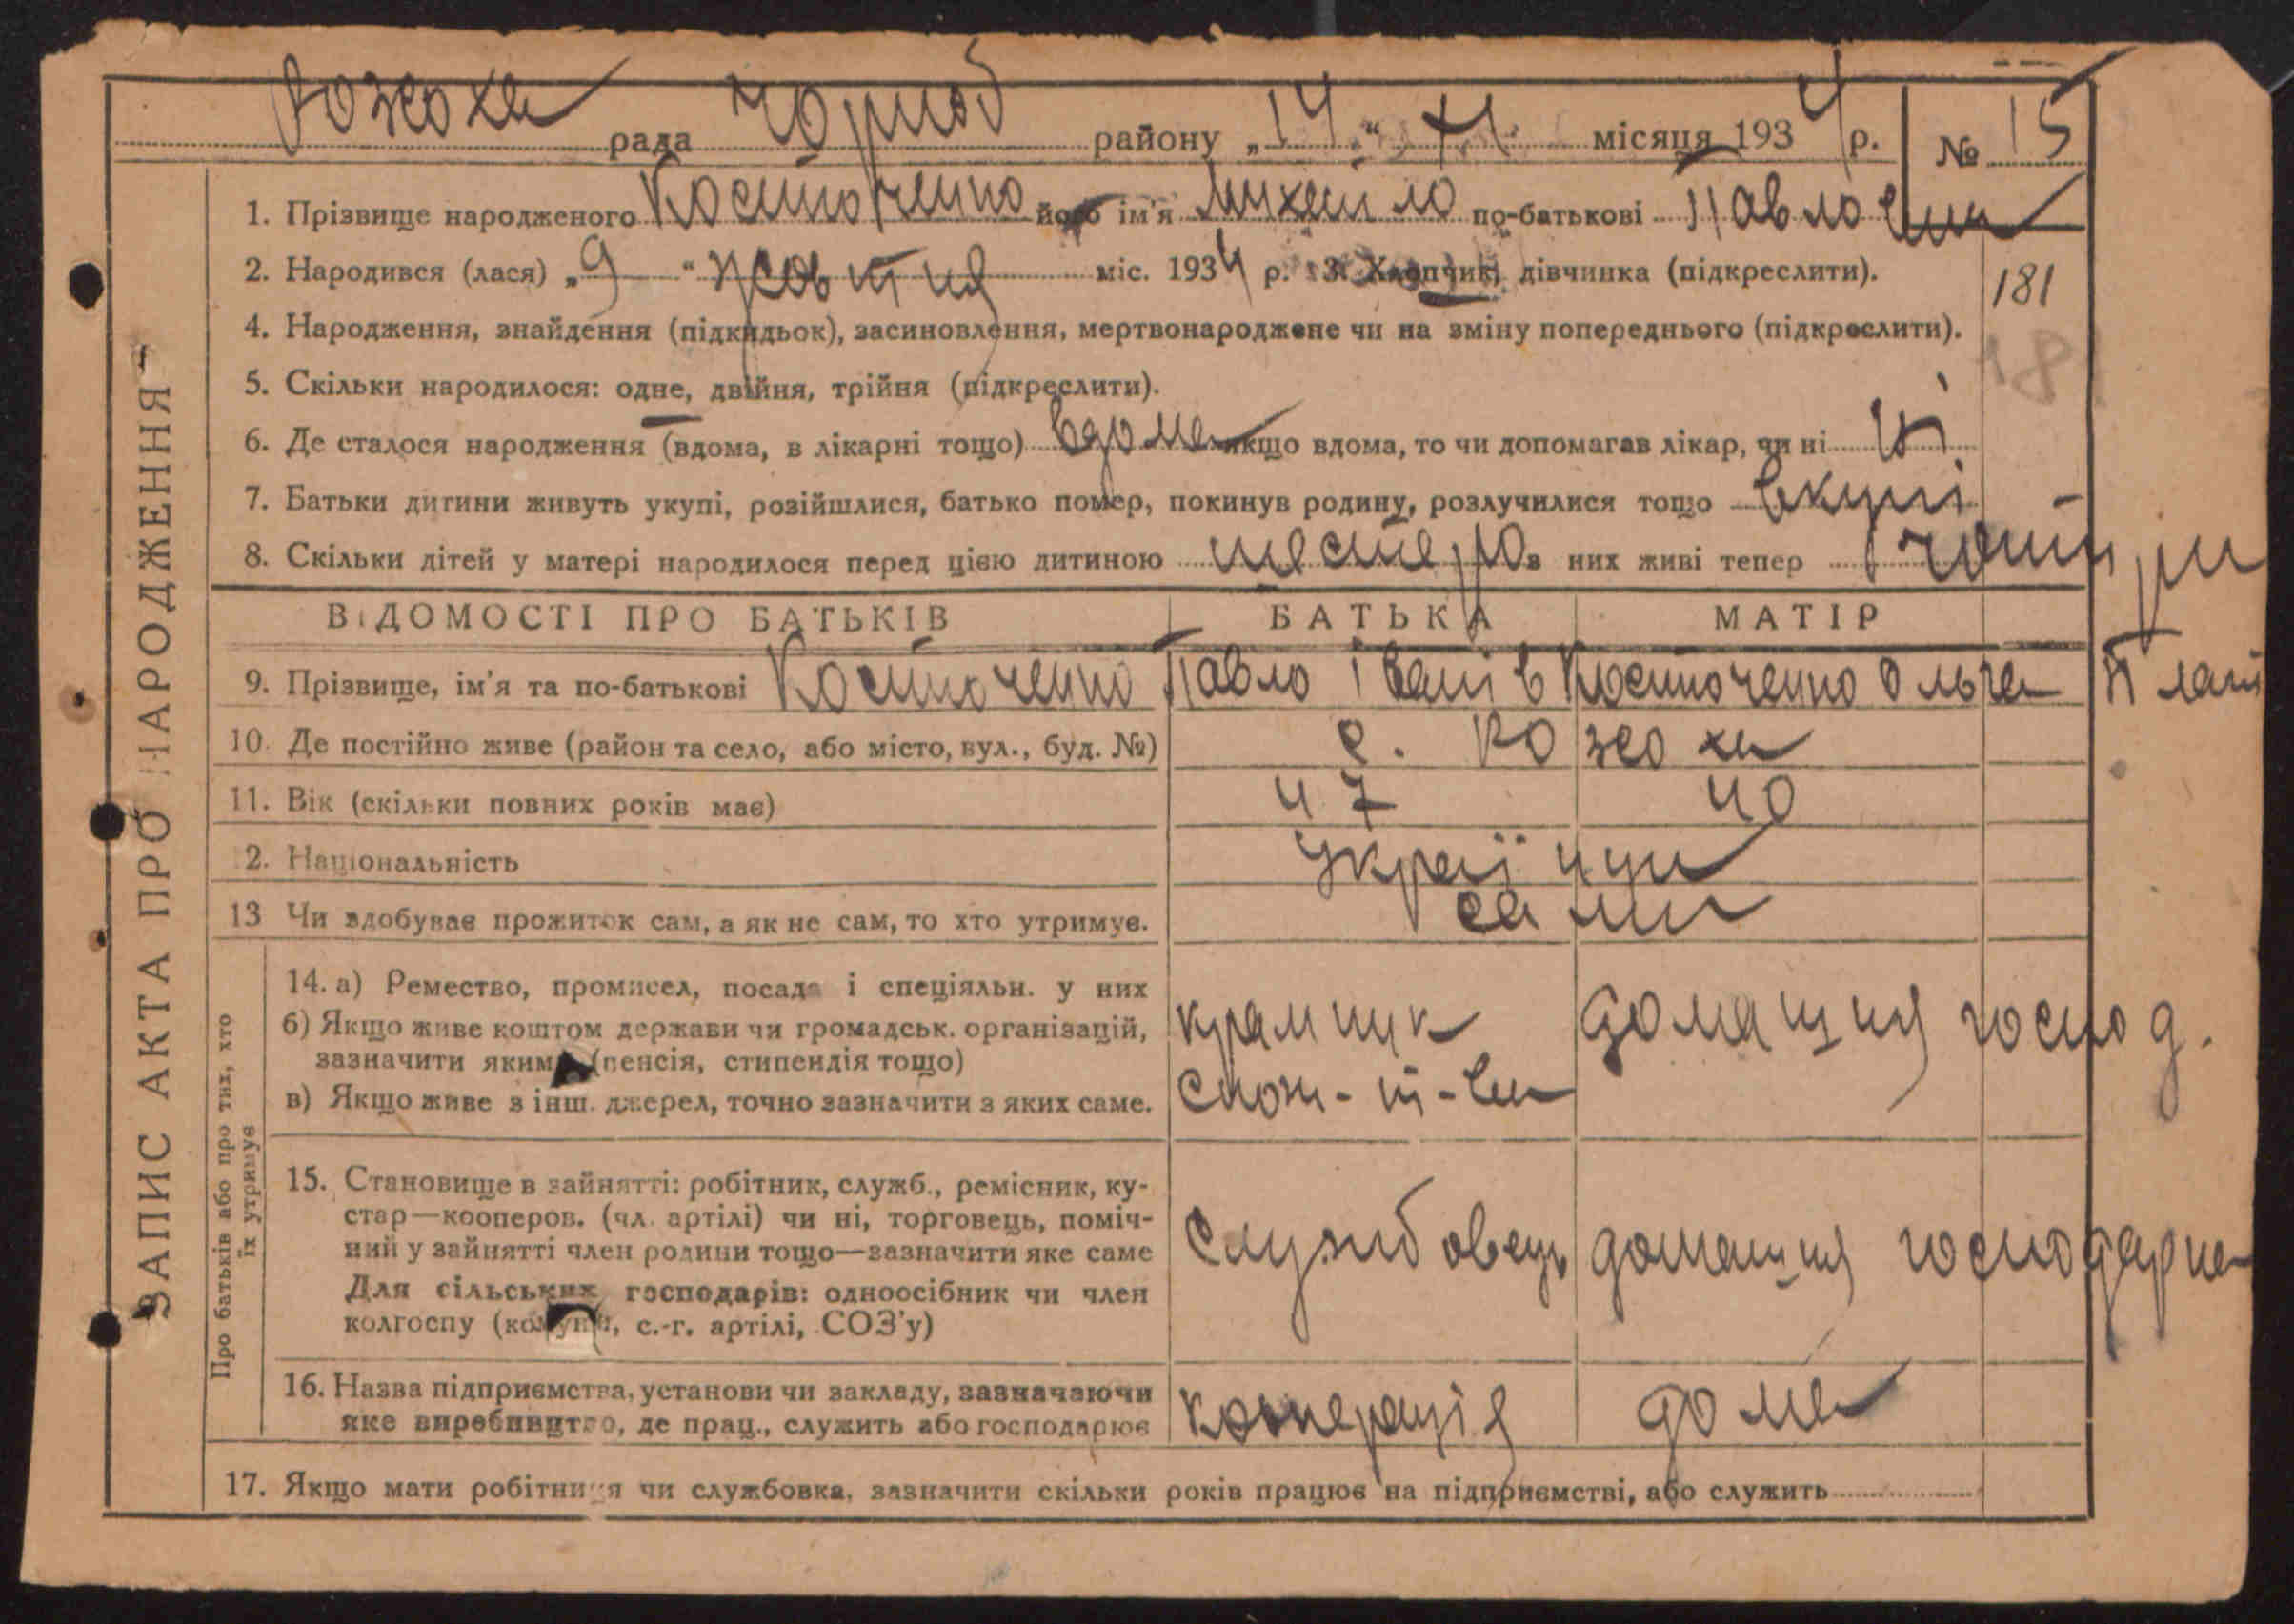 Розсоха рада Чорноб району „14“ XI місяця 1934 р. № 15
1. Прізвище народженого Костюченко його ім'я Михайло по-батькові Павлович
2. Народився (лася) „9“ жовтня міс. 1934 р. 3. Хлопчик, дівчинка (підкреслити).
181
4. Народження, знайдення (підкидьок), засиновлення, мертвонароджене чи на зміну попереднього (підкреслити).
18
5. Скільки народилося: одне, двійня, трійня (підкреслити).
6. Де сталося народження (вдома, в лікарні тощо) вдома якщо вдома, то чи допомагав лікар, чи ні ні
7. Батьки дитини живуть укупі, розійшлися, батько помер, покинув родину, розлучилися тощо вкупі
8. Скільки дітей у матері народилося перед цією дитиною шестеро з них живі тепер чотири
ВІДОМОСТІ ПРО БАТЬКІВ БАТЬКА МАТІР
9. Прізвище, ім'я та по-батькові Костюченко Павло Іванів Костюченко Ольга Плат
10. Де постійно живе (район та село, або місто, вул., буд. №) с. Розсоха
11. Вік (скільки повних років має) 47 40
2. Національність Українци
13 Чи здобуває прожиток сам, а як не сам, то хто утримує. сами
14. а) Ремество, промисел, посада і спеціяльн. у них
б) Якщо живе коштом держави чи громадськ. організацій,
зазначити яким (пенсія, стипендія тощо)
в) Якщо живе з інш. джерел, точно зазначити з яких саме.
крамник
спож-т-ва
домашня господ.
15. Становище в зайнятті: робітник, служб., ремісник, ку-
стар—кооперов. (чл. артілі) чи ні, торговець, поміч-
ний у зайнятті член родини тощо—зазначити яке саме
Для сільських господарів: одноосібник чи член
колгоспу (комуни, с.-г. артілі, СОЗ'у)
Службовець домашня господарка
16. Назва підприємства, установи чи закладу, зазначаючи
яке виробництво, де прац., служить або господарює
кооперація дома
17. Якщо мати робітниця чи службовка, зазначити скільки років працює на підприємстві, або служить
ЗАПИС АКТА ПРО НАРОДЖЕННЯ
Про батьків або про тих, хто
їх утримує